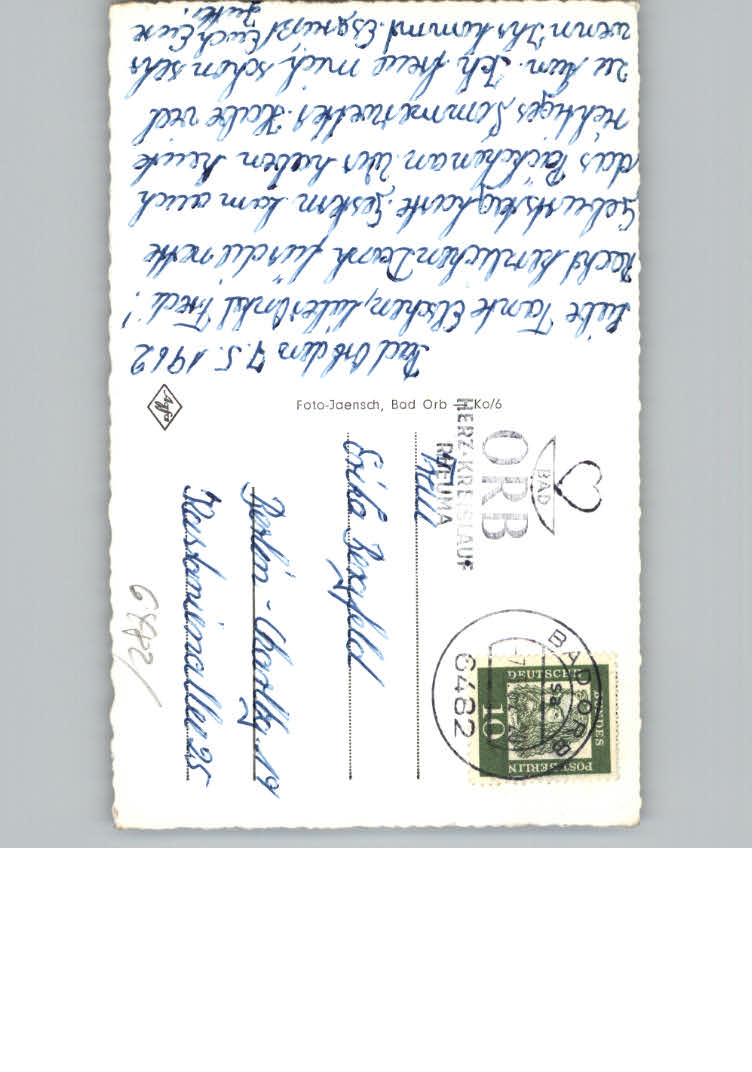 Bad Orb den 7.5.1962
Liebe Tante Elschen, lieber Onkel Fredi!
Recht herzlichen Dank für die nette
Geburtstagkarte. Gestern kam auch
das Päckchen an. Wir haben heute
richtiges Sommerwetter. Habe viel
zu tun. Ich freue mich schon sehr
wenn Ihr kommt. Es grüßt Euch Eure
Foto-Jaensch, Bad Orb — Ko/6
Agfa
BAD
ORB
HERZ-KREISLAUF
RHEUMA
BAD ORB
sa
6482
DEUTSCHE BUNDES
POST BERLIN
10
Erika Bergfeld
Berlin-Charlbg. 19
Kastanienallee 25